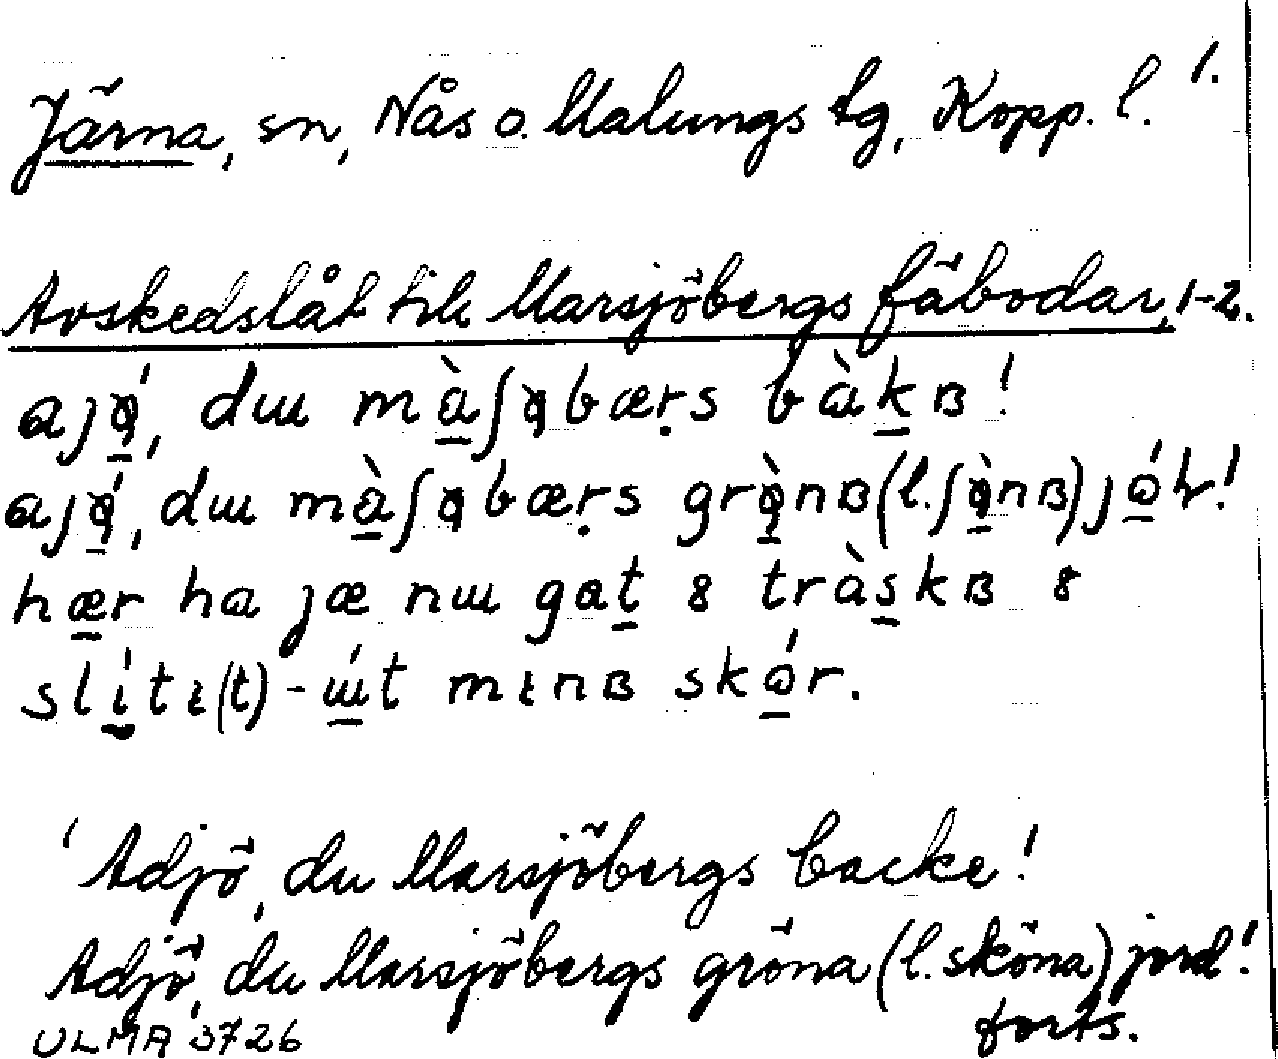 1.
Järna, sn, Nås o. Malungs tg, Kopp. l.
Avskedslåt till Marsjöbergs fäbodar, 1-2.
aȷǫ́, dɯ màʃǫbæṛs bàkʙ!
aȷǫ́, dɯ màʃǫbæṛs grǫ̀nʙ (l. ʃǫ̀nʙ) ȷɷ́ɽ!
hær ha ȷæ nɯ gat 8 tràskʙ 8
slítɩ(t)-ɯ́t mɩnʙ skɷ́r.
'Adjö, du Marsjöbergs backe!
Adjö, du Marsjöbergs gröna (l. sköna) jord!
forts.
ULMA 3726